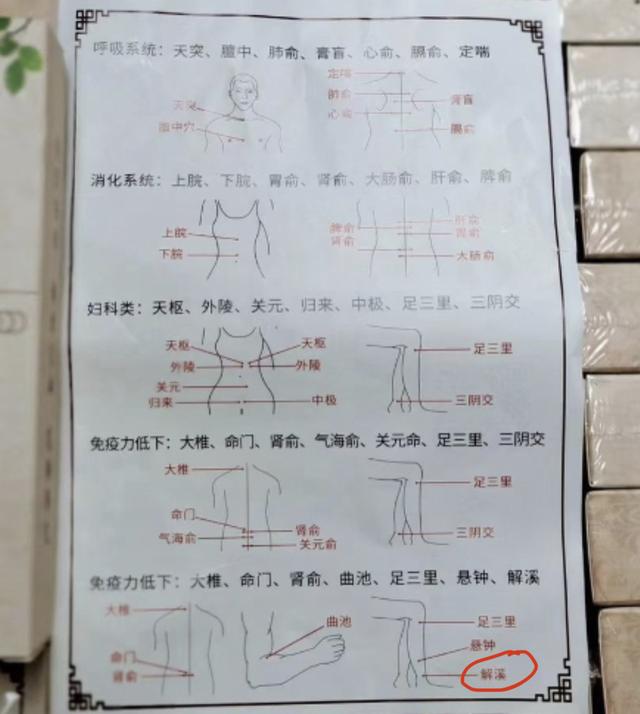 呼吸系统：天突、膻中、肺俞、膏肓、心俞、膈俞、定喘
定喘
天突
肺俞
膏肓
心俞
膻中穴
膈俞
消化系统：上脘、下脘、胃俞、肾俞、大肠俞、肝俞、脾俞
上脘
下脘
肝俞
脾俞
胃俞
肾俞
大肠俞
妇科类：天枢、外陵、关元、归来、中极、足三里、三阴交
天枢
天枢
外陵
外陵
关元
归来
中极
足三里
三阴交
免疫力低下：大椎、命门、肾俞、气海俞、关元命、足三里、三阴交
大椎
命门
气海俞
肾俞
关元俞
足三里
三阴交
免疫力低下：大椎、命门、肾俞、曲池、足三里、悬钟、解溪
大椎
命门
肾俞
曲池
足三里
悬钟
解溪